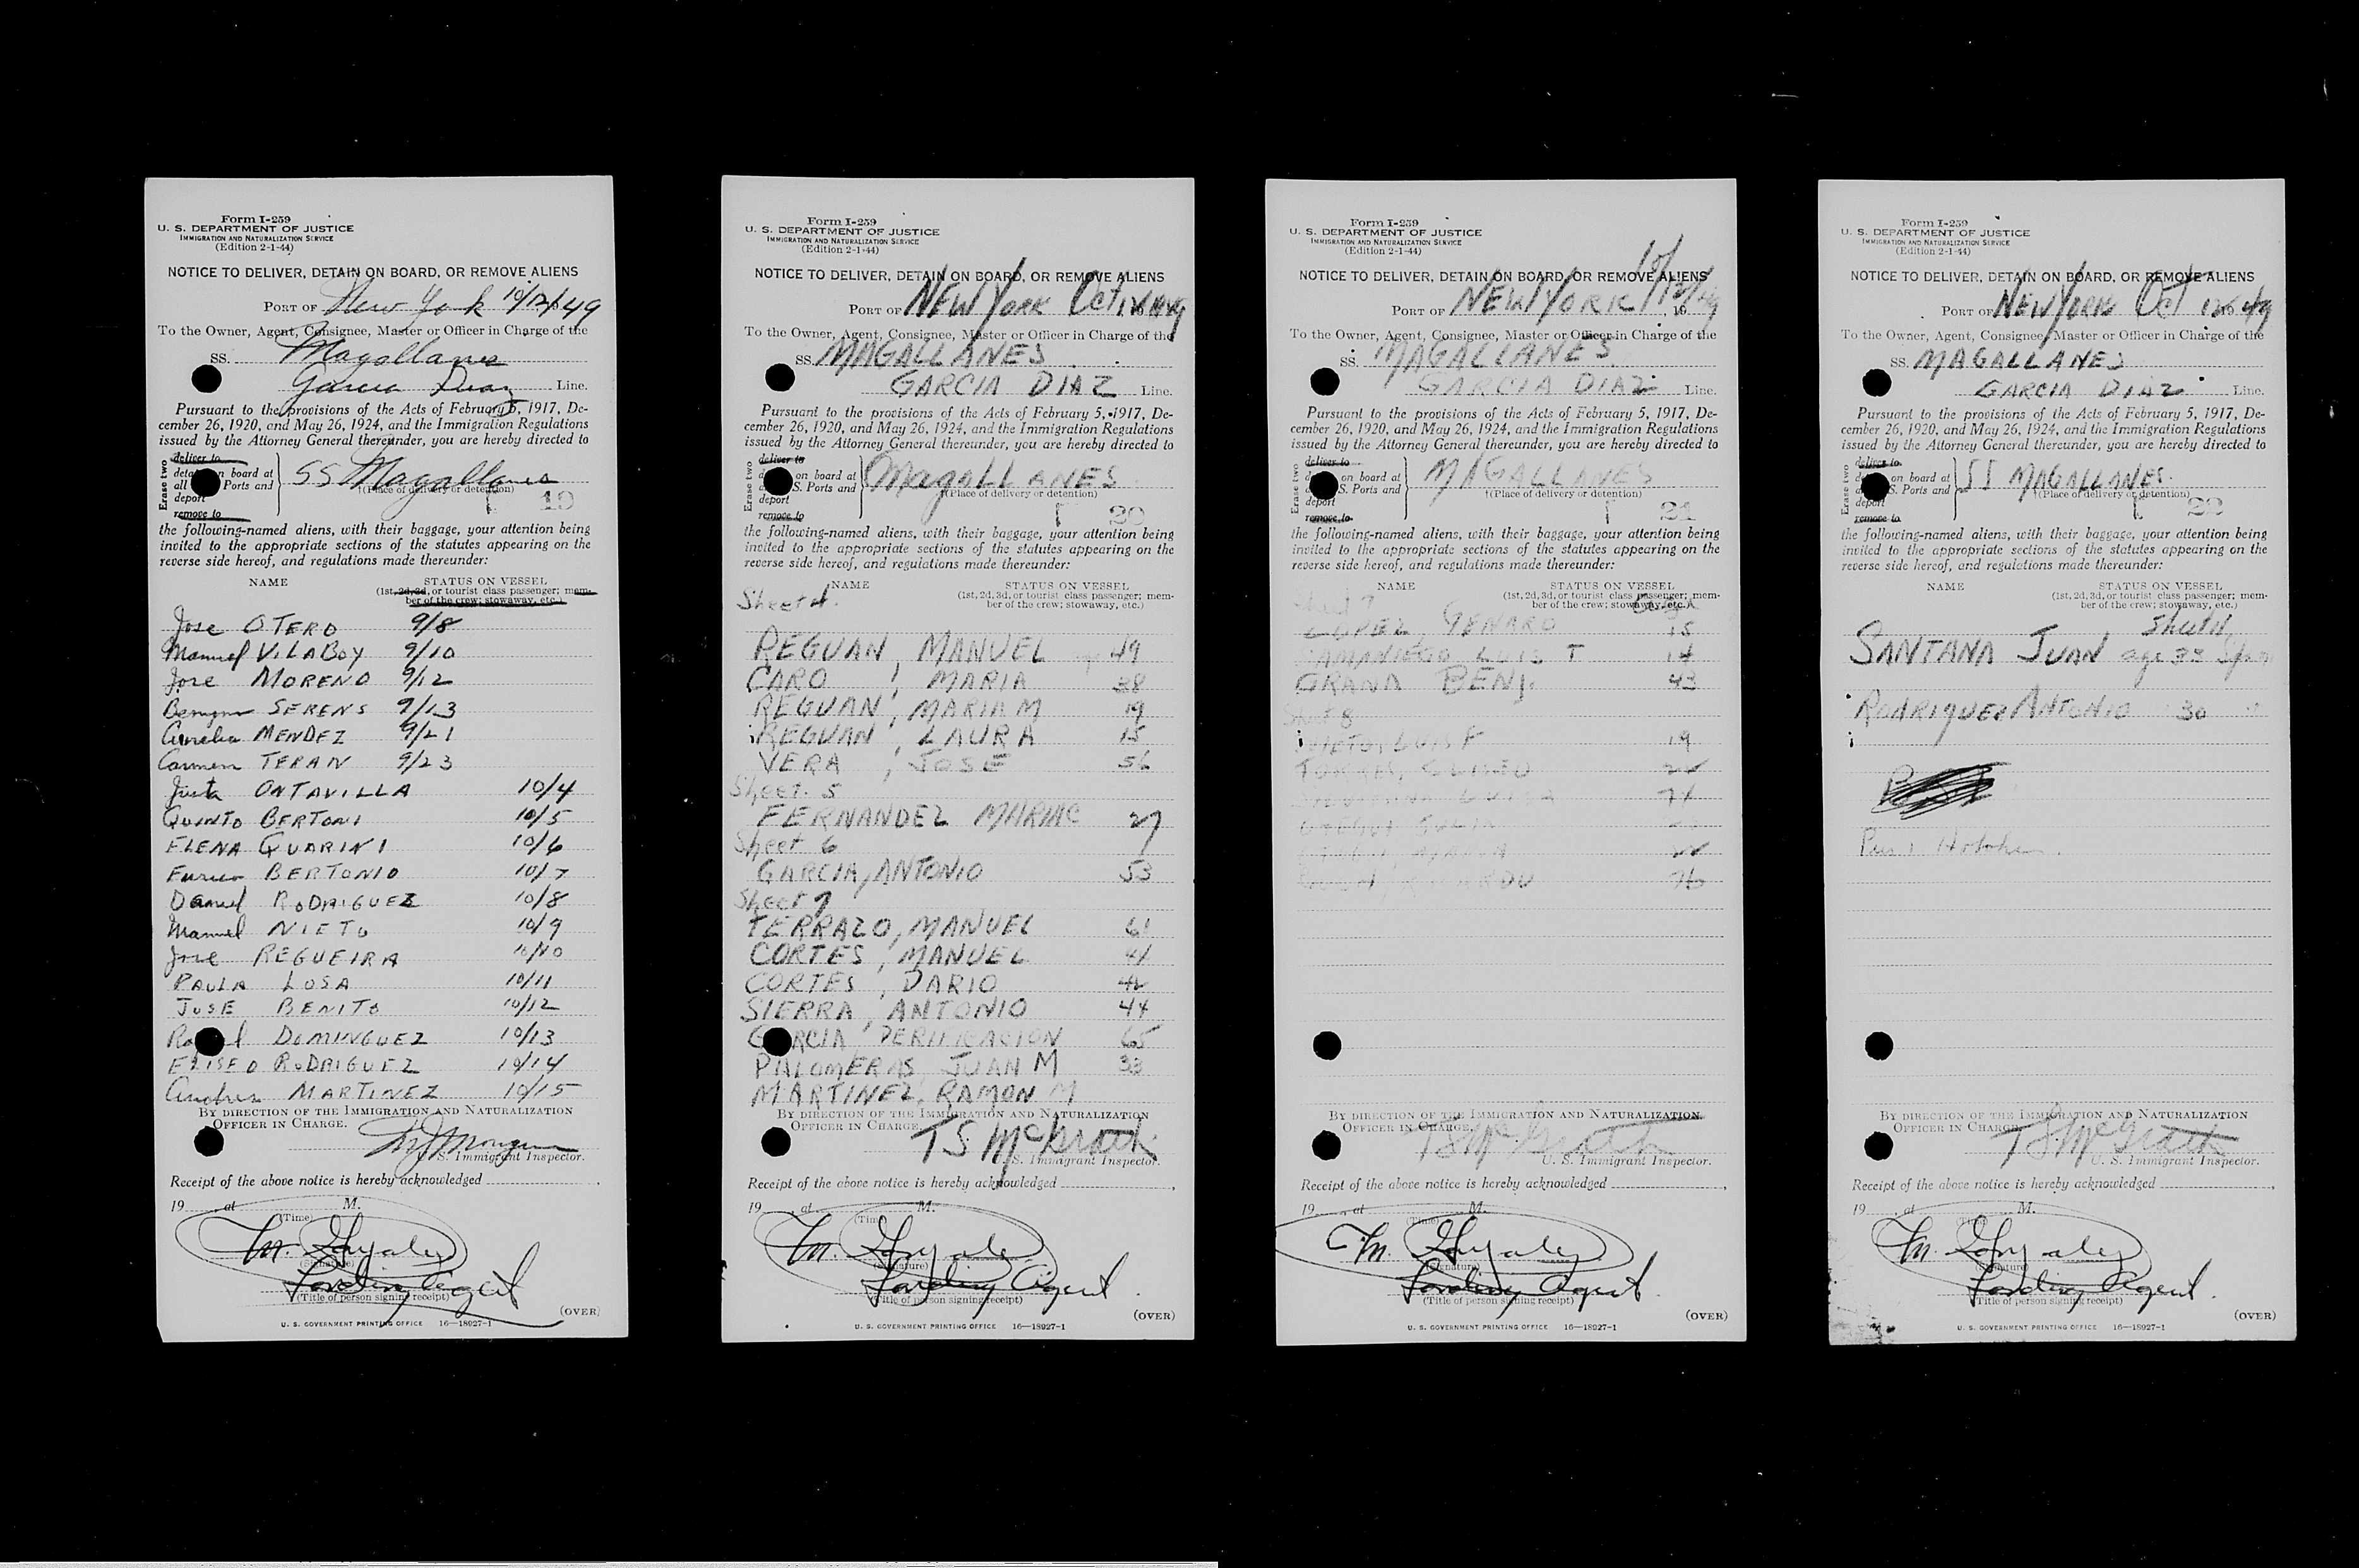 Form I-259
U. S. DEPARTMENT OF JUSTICE
IMMIGRATION AND NATURALIZATION SERVICE
(Edition 2-1-44)
NOTICE TO DELIVER, DETAIN ON BOARD, OR REMOVE ALIENS
PORT OF New York 10/12/49
To the Owner, Agent, Consignee, Master or Officer in Charge of the
SS. Magallanes
Garcia Diaz Line.
Pursuant to the provisions of the Acts of February 5, 1917, De-
cember 26, 1920, and May 26, 1924, and the Immigration Regulations
issued by the Attorney General thereunder, you are hereby directed to
Erase two
deliver to
on board at
all Ports and
deport
remove to
SS Magallanes
(Place of delivery or detention)
19
the following-named aliens, with their baggage, your attention being
invited to the appropriate sections of the statutes appearing on the
reverse side hereof, and regulations made thereunder:
NAME STATUS ON VESSEL
(1st, 2d, 3d, or tourist class passenger; mem-
ber of the crew; stowaway, etc.)
Jose OTERO 9/8
Manuel VILABOY 9/10
Jose MORENO 9/12
SERENS 9/13
Amelia MENDEZ 9/21
Carmen TERAN 9/23
Justa ONTAVILLA 10/4
QUINTO BERTONI 10/5
ELENA QUARINI 10/6
Enrico BERTONIO 10/7
Daniel RODRIGUEZ 10/8
Manuel NIETO 10/9
Jose REGUEIRA 10/10
PAULA LOSA 10/11
JOSE BENITO 10/12
DOMINGUEZ 10/13
ELISEO RODRIGUEZ 10/14
Andres MARTINEZ 10/15
BY DIRECTION OF THE IMMIGRATION AND NATURALIZATION
OFFICER IN CHARGE.
U. S. Immigrant Inspector.
Receipt of the above notice is hereby acknowledged
19 , at M.
(Time)
(Signature)
Landing Agent
(Title of person signing receipt)
(OVER)
U. S. GOVERNMENT PRINTING OFFICE 16—18927-1
Form I-259
U. S. DEPARTMENT OF JUSTICE
IMMIGRATION AND NATURALIZATION SERVICE
(Edition 2-1-44)
NOTICE TO DELIVER, DETAIN ON BOARD, OR REMOVE ALIENS
PORT OF NEW YORK Oct 12 1949
To the Owner, Agent, Consignee, Master or Officer in Charge of the
SS. MAGALLANES
GARCIA DIAZ Line.
Pursuant to the provisions of the Acts of February 5, 1917, De-
cember 26, 1920, and May 26, 1924, and the Immigration Regulations
issued by the Attorney General thereunder, you are hereby directed to
Erase two
deliver to
on board at
S. Ports and
deport
remove to
MagaLLANES
(Place of delivery or detention)
20
the following-named aliens, with their baggage, your attention being
invited to the appropriate sections of the statutes appearing on the
reverse side hereof, and regulations made thereunder:
NAME STATUS ON VESSEL
(1st, 2d, 3d, or tourist class passenger; mem-
ber of the crew; stowaway, etc.)
Sheet 4.
REGUAN, MANUEL age 49
CARO, MARIA 38
REGUAN, MARIA M 19
REGUAN, LAURA 15
VERA, JOSE 56
Sheet. 5
FERNANDEZ 27
Sheet 6
GARCIA, ANTONIO 53
Sheet 7
FERRAZO, MANUEL 61
CORTES, MANUEL 41
CORTES, DARIO 42
SIERRA, ANTONIO 44
GARCIA 65
PALOMERAS JUAN M 33
MARTINEZ, RAMON M
BY DIRECTION OF THE IMMIGRATION AND NATURALIZATION
OFFICER IN CHARGE.
T S McGrath
U. S. Immigrant Inspector.
Receipt of the above notice is hereby acknowledged
19 , at M.
(Time)
(Signature)
Landing Agent.
(Title of person signing receipt)
(OVER)
U. S. GOVERNMENT PRINTING OFFICE 16—18927-1
Form I-259
U. S. DEPARTMENT OF JUSTICE
IMMIGRATION AND NATURALIZATION SERVICE
(Edition 2-1-44)
NOTICE TO DELIVER, DETAIN ON BOARD, OR REMOVE ALIENS
PORT OF NEW YORK 10/12/49
To the Owner, Agent, Consignee, Master or Officer in Charge of the
SS. MAGALLANES
GARCIA DIAZ Line.
Pursuant to the provisions of the Acts of February 5, 1917, De-
cember 26, 1920, and May 26, 1924, and the Immigration Regulations
issued by the Attorney General thereunder, you are hereby directed to
Erase two
deliver to
on board at
S. Ports and
deport
remove to
MAGALLANES
(Place of delivery or detention)
21
the following-named aliens, with their baggage, your attention being
invited to the appropriate sections of the statutes appearing on the
reverse side hereof, and regulations made thereunder:
NAME STATUS ON VESSEL
(1st, 2d, 3d, or tourist class passenger; mem-
ber of the crew; stowaway, etc.)
Sheet 7
LOPEZ, GENARO 15
SAMANIEGO LUIS T 14
GRANA BENJ. 43
Sheet 8
NIETO, LUIS F 19
TORRES,
74
76
BY DIRECTION OF THE IMMIGRATION AND NATURALIZATION
OFFICER IN CHARGE.
T S McGrath
U. S. Immigrant Inspector.
Receipt of the above notice is hereby acknowledged
19 , at M.
(Time)
(Signature)
Landing Agent.
(Title of person signing receipt)
(OVER)
U. S. GOVERNMENT PRINTING OFFICE 16—18927-1
Form I-259
U. S. DEPARTMENT OF JUSTICE
IMMIGRATION AND NATURALIZATION SERVICE
(Edition 2-1-44)
NOTICE TO DELIVER, DETAIN ON BOARD, OR REMOVE ALIENS
PORT OF NEW YORK Oct 12 49
To the Owner, Agent, Consignee, Master or Officer in Charge of the
SS. MAGALLANES
GARCIA DIAZ Line.
Pursuant to the provisions of the Acts of February 5, 1917, De-
cember 26, 1920, and May 26, 1924, and the Immigration Regulations
issued by the Attorney General thereunder, you are hereby directed to
Erase two
deliver to
on board at
S. Ports and
deport
remove to
SS MAGALLANES.
(Place of delivery or detention)
22
the following-named aliens, with their baggage, your attention being
invited to the appropriate sections of the statutes appearing on the
reverse side hereof, and regulations made thereunder:
NAME STATUS ON VESSEL
(1st, 2d, 3d, or tourist class passenger; mem-
ber of the crew; stowaway, etc.)
SANTANA JUAN age 33
RODRIGUEZ ANTONIO 30 "
Pier 1 Hoboken.
BY DIRECTION OF THE IMMIGRATION AND NATURALIZATION
OFFICER IN CHARGE.
T S McGrath
U. S. Immigrant Inspector.
Receipt of the above notice is hereby acknowledged
19 , at M.
(Time)
(Signature)
Landing Agent.
(Title of person signing receipt)
(OVER)
U. S. GOVERNMENT PRINTING OFFICE 16—18927-1